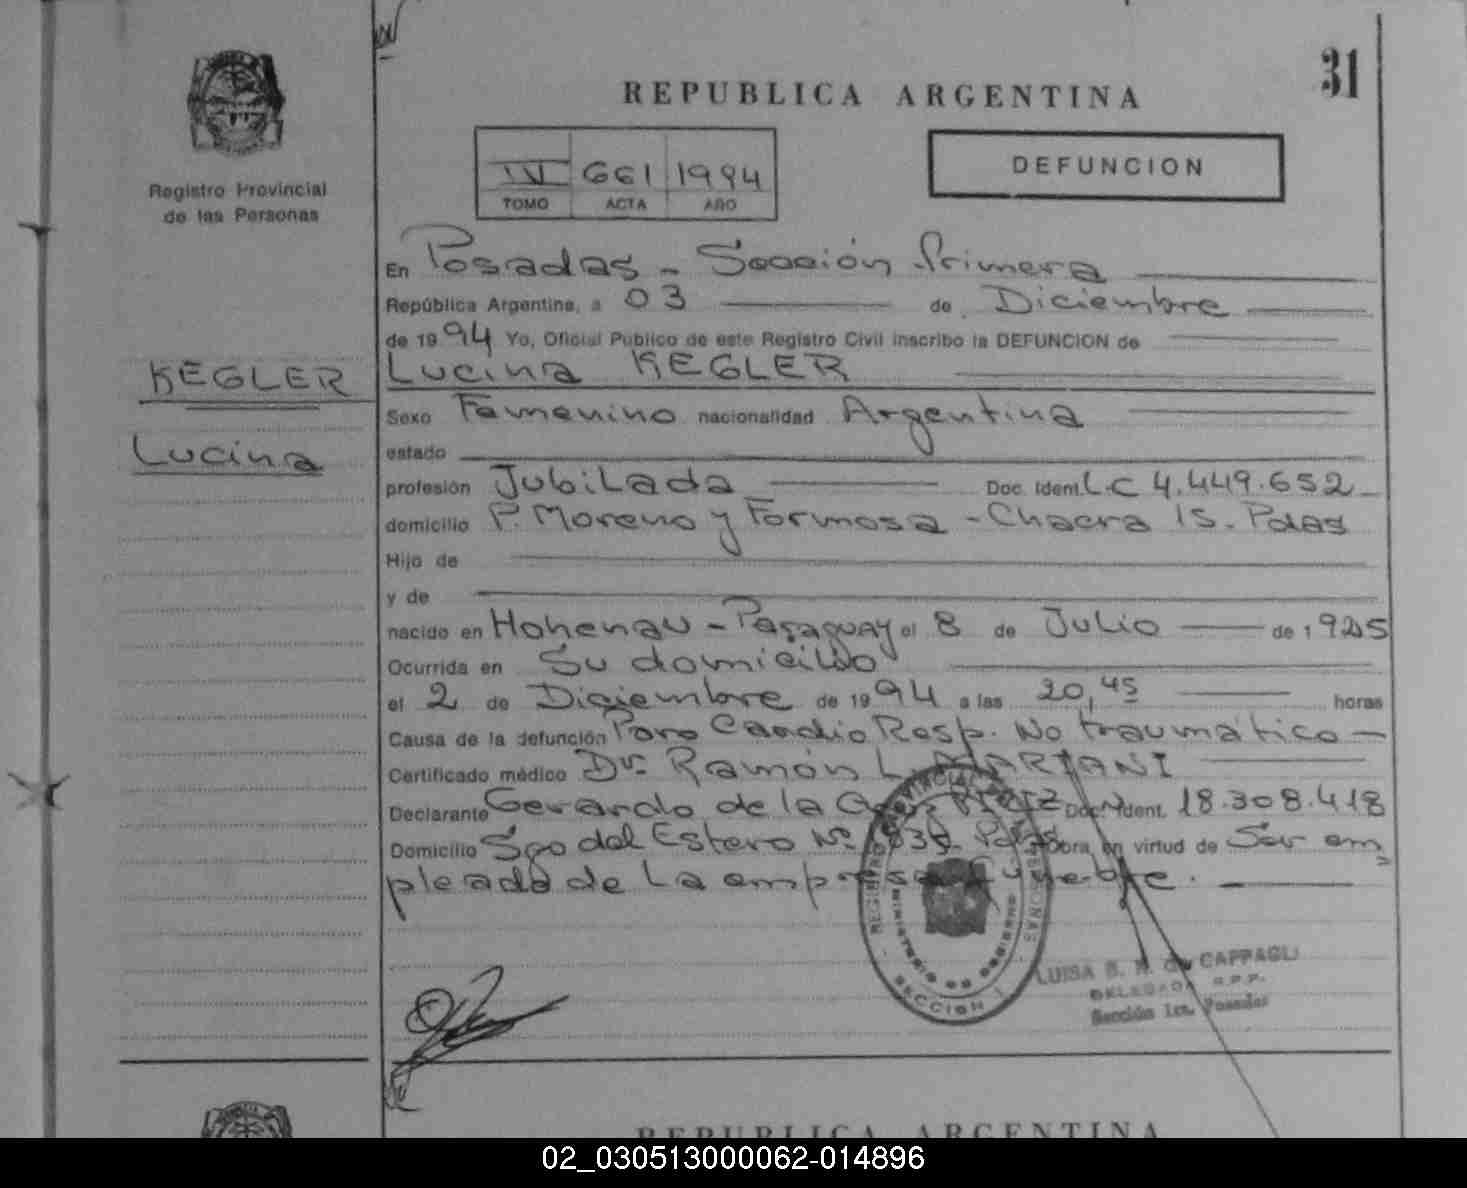 31
REPUBLICA ARGENTINA
Registro Provincial
de las Personas
IV 661 1994
TOMO ACTA AÑO
DEFUNCION
En Posadas - Sección Primera
República Argentina, a 03 de Diciembre
de 1994 Yo, Oficial Público de este Registro Civil inscribo la DEFUNCION de
Lucina KEGLER
KEGLER
Lucina
Sexo Femenino nacionalidad Argentina
estado
profesión Jubilada Doc. Ident. L.C 4.449.652
domicilio P. Moreno y Formosa - Chacra 15. Pdas
Hijo de
y de
nacido en Hohenau - Paraguay el 8 de Julio de 1925
Ocurrida en Su domicilio
el 2 de Diciembre de 1994 a las 20,45 horas
Causa de la defunción Paro Cardio Resp. No traumático
Certificado médico Dr. Ramón L. MARIANI
Declarante Gerardo de la Doc. Ident. 18.308.418
Domicilio Sgo del Estero Nº Obra en virtud de Ser em
pleado de la empresa fúnebre.
REGISTRO PROVINCIAL DE LAS PERSONAS
MINISTERIO DE GOBIERNO
SECCION I
LUISA de CAPPAGLI
DELEGADA R.P.P.
Sección 1ra. Posadas
REPUBLICA ARGENTINA
02_030513000062-014896